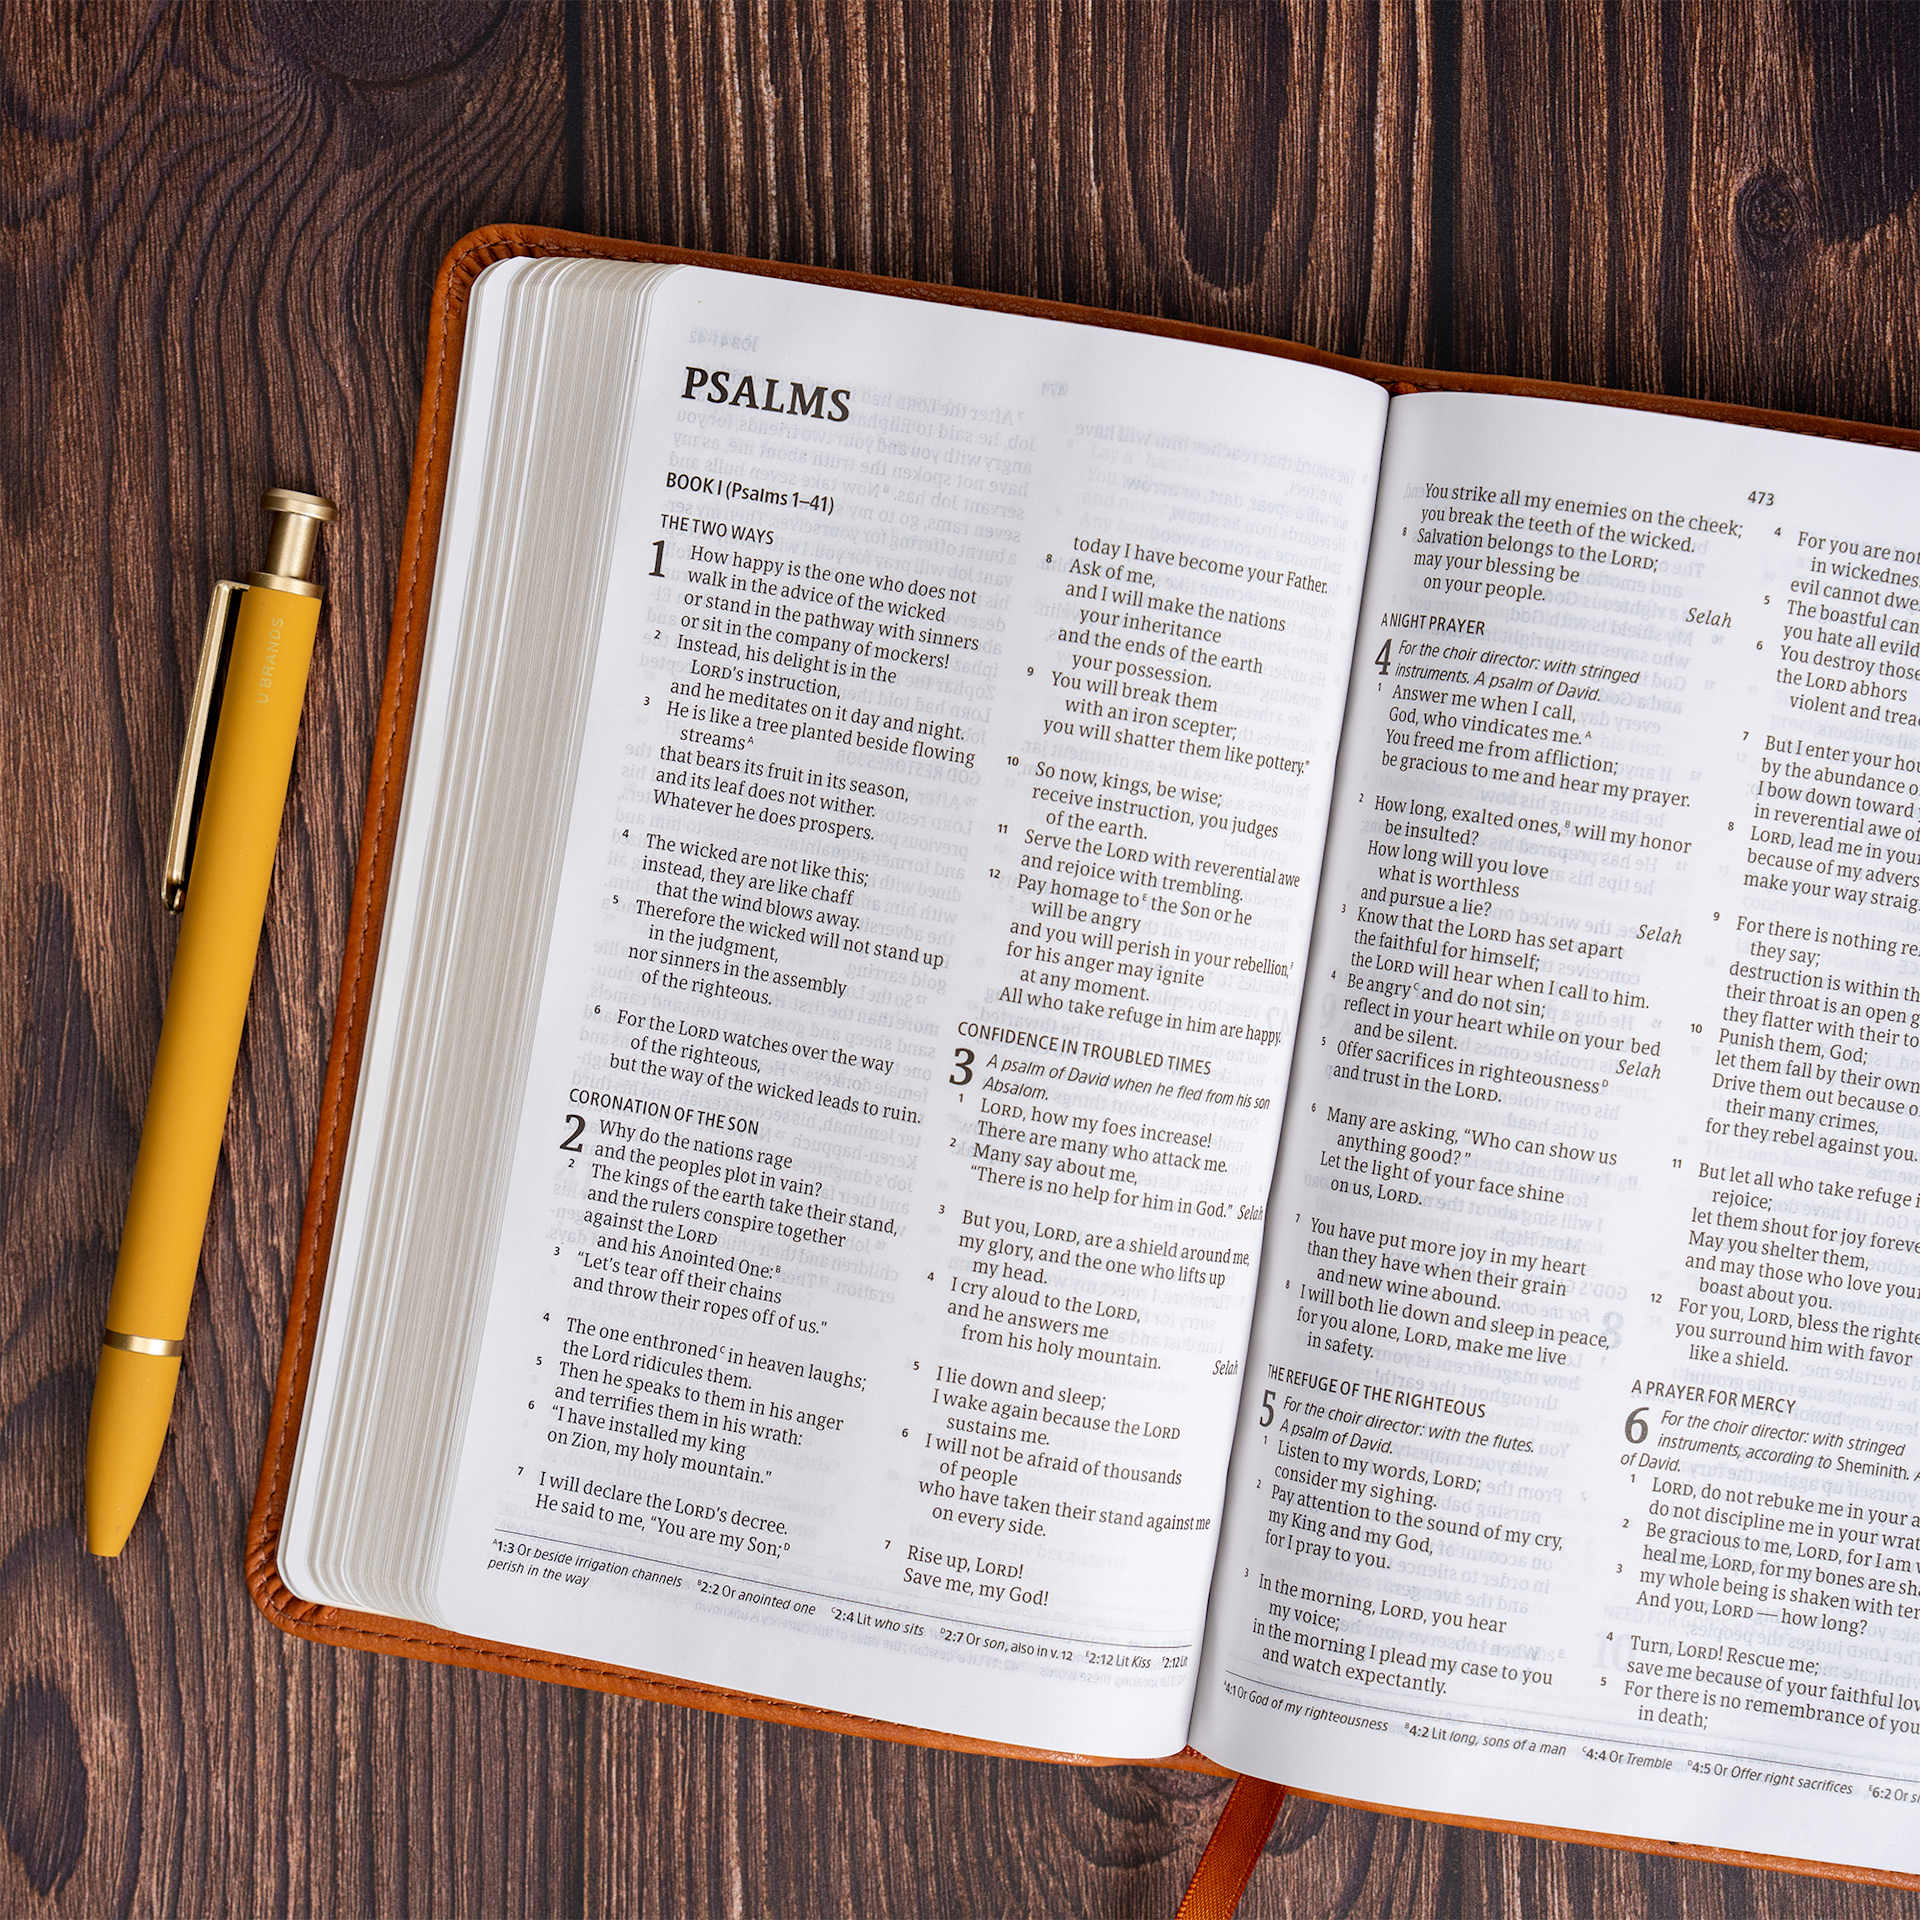 U BRANDS
PSALMS
BOOK I (Psalms 1–41)
THE TWO WAYS
1 How happy is the one who does not
walk in the advice of the wicked
or stand in the pathway with sinners
or sit in the company of mockers!
2 Instead, his delight is in the
LORD's instruction,
and he meditates on it day and night.
3 He is like a tree planted beside flowing
streams A
that bears its fruit in its season,
and its leaf does not wither.
Whatever he does prospers.
4 The wicked are not like this;
instead, they are like chaff
that the wind blows away.
5 Therefore the wicked will not stand up
in the judgment,
nor sinners in the assembly
of the righteous.
6 For the LORD watches over the way
of the righteous,
but the way of the wicked leads to ruin.
CORONATION OF THE SON
2 Why do the nations rage
and the peoples plot in vain?
2 The kings of the earth take their stand,
and the rulers conspire together
against the LORD
and his Anointed One: B
3 “Let's tear off their chains
and throw their ropes off of us.”
4 The one enthroned C in heaven laughs;
the Lord ridicules them.
5 Then he speaks to them in his anger
and terrifies them in his wrath:
6 “I have installed my king
on Zion, my holy mountain.”
7 I will declare the LORD's decree.
He said to me, “You are my Son; D
today I have become your Father.
8 Ask of me,
and I will make the nations
your inheritance
and the ends of the earth
your possession.
9 You will break them
with an iron scepter;
you will shatter them like pottery.”
10 So now, kings, be wise;
receive instruction, you judges
of the earth.
11 Serve the LORD with reverential awe
and rejoice with trembling.
12 Pay homage to E the Son or he
will be angry
and you will perish in your rebellion, F
for his anger may ignite
at any moment.
All who take refuge in him are happy.
CONFIDENCE IN TROUBLED TIMES
3 A psalm of David when he fled from his son
Absalom.
1 LORD, how my foes increase!
There are many who attack me.
2 Many say about me,
“There is no help for him in God.” Selah
3 But you, LORD, are a shield around me,
my glory, and the one who lifts up
my head.
4 I cry aloud to the LORD,
and he answers me
from his holy mountain. Selah
5 I lie down and sleep;
I wake again because the LORD
sustains me.
6 I will not be afraid of thousands
of people
who have taken their stand against me
on every side.
7 Rise up, LORD!
Save me, my God!
A 1:3 Or beside irrigation channels B 2:2 Or anointed one C 2:4 Lit who sits D 2:7 Or son, also in v. 12 E 2:12 Lit Kiss F 2:12 Lit
perish in the way
473
You strike all my enemies on the cheek;
you break the teeth of the wicked.
8 Salvation belongs to the LORD;
may your blessing be
on your people. Selah
A NIGHT PRAYER
4 For the choir director: with stringed
instruments. A psalm of David.
1 Answer me when I call,
God, who vindicates me. A
You freed me from affliction;
be gracious to me and hear my prayer.
2 How long, exalted ones, B will my honor
be insulted?
How long will you love
what is worthless
and pursue a lie? Selah
3 Know that the LORD has set apart
the faithful for himself;
the LORD will hear when I call to him.
4 Be angry C and do not sin;
reflect in your heart while on your bed
and be silent. Selah
5 Offer sacrifices in righteousness D
and trust in the LORD.
6 Many are asking, “Who can show us
anything good?”
Let the light of your face shine
on us, LORD.
7 You have put more joy in my heart
than they have when their grain
and new wine abound.
8 I will both lie down and sleep in peace,
for you alone, LORD, make me live
in safety.
THE REFUGE OF THE RIGHTEOUS
5 For the choir director: with the flutes.
A psalm of David.
1 Listen to my words, LORD;
consider my sighing.
2 Pay attention to the sound of my cry,
my King and my God,
for I pray to you.
3 In the morning, LORD, you hear
my voice;
in the morning I plead my case to you
and watch expectantly.
4 For you are not
in wickedness
evil cannot
5 The boastful can
you hate all
6 You destroy those
the LORD abhors
violent and
7 But I enter your
by the abundance
I bow down toward
in reverential awe of
8 LORD, lead me in your
because of my
make your way
9 For there is nothing
they say;
destruction is within
their throat is an open
they flatter with their
10 Punish them, God;
let them fall by their own
Drive them out because
their many crimes,
for they rebel against you.
11 But let all who take refuge
rejoice;
let them shout for joy
May you shelter them,
and may those who love your
boast about you.
12 For you, LORD, bless the
you surround him with favor
like a shield.
A PRAYER FOR MERCY
6 For the choir director: with stringed
instruments, according to Sheminith.
of David.
1 LORD, do not rebuke me in your
do not discipline me in your
2 Be gracious to me, LORD, for I am
heal me, LORD, for my bones are
3 my whole being is shaken with
And you, LORD — how long?
4 Turn, LORD! Rescue me;
save me because of your faithful
5 For there is no remembrance of
in death;
A 4:1 Or God of my righteousness B 4:2 Lit long, sons of a man C 4:4 Or Tremble D 4:5 Or Offer right sacrifices E 6:2 Or